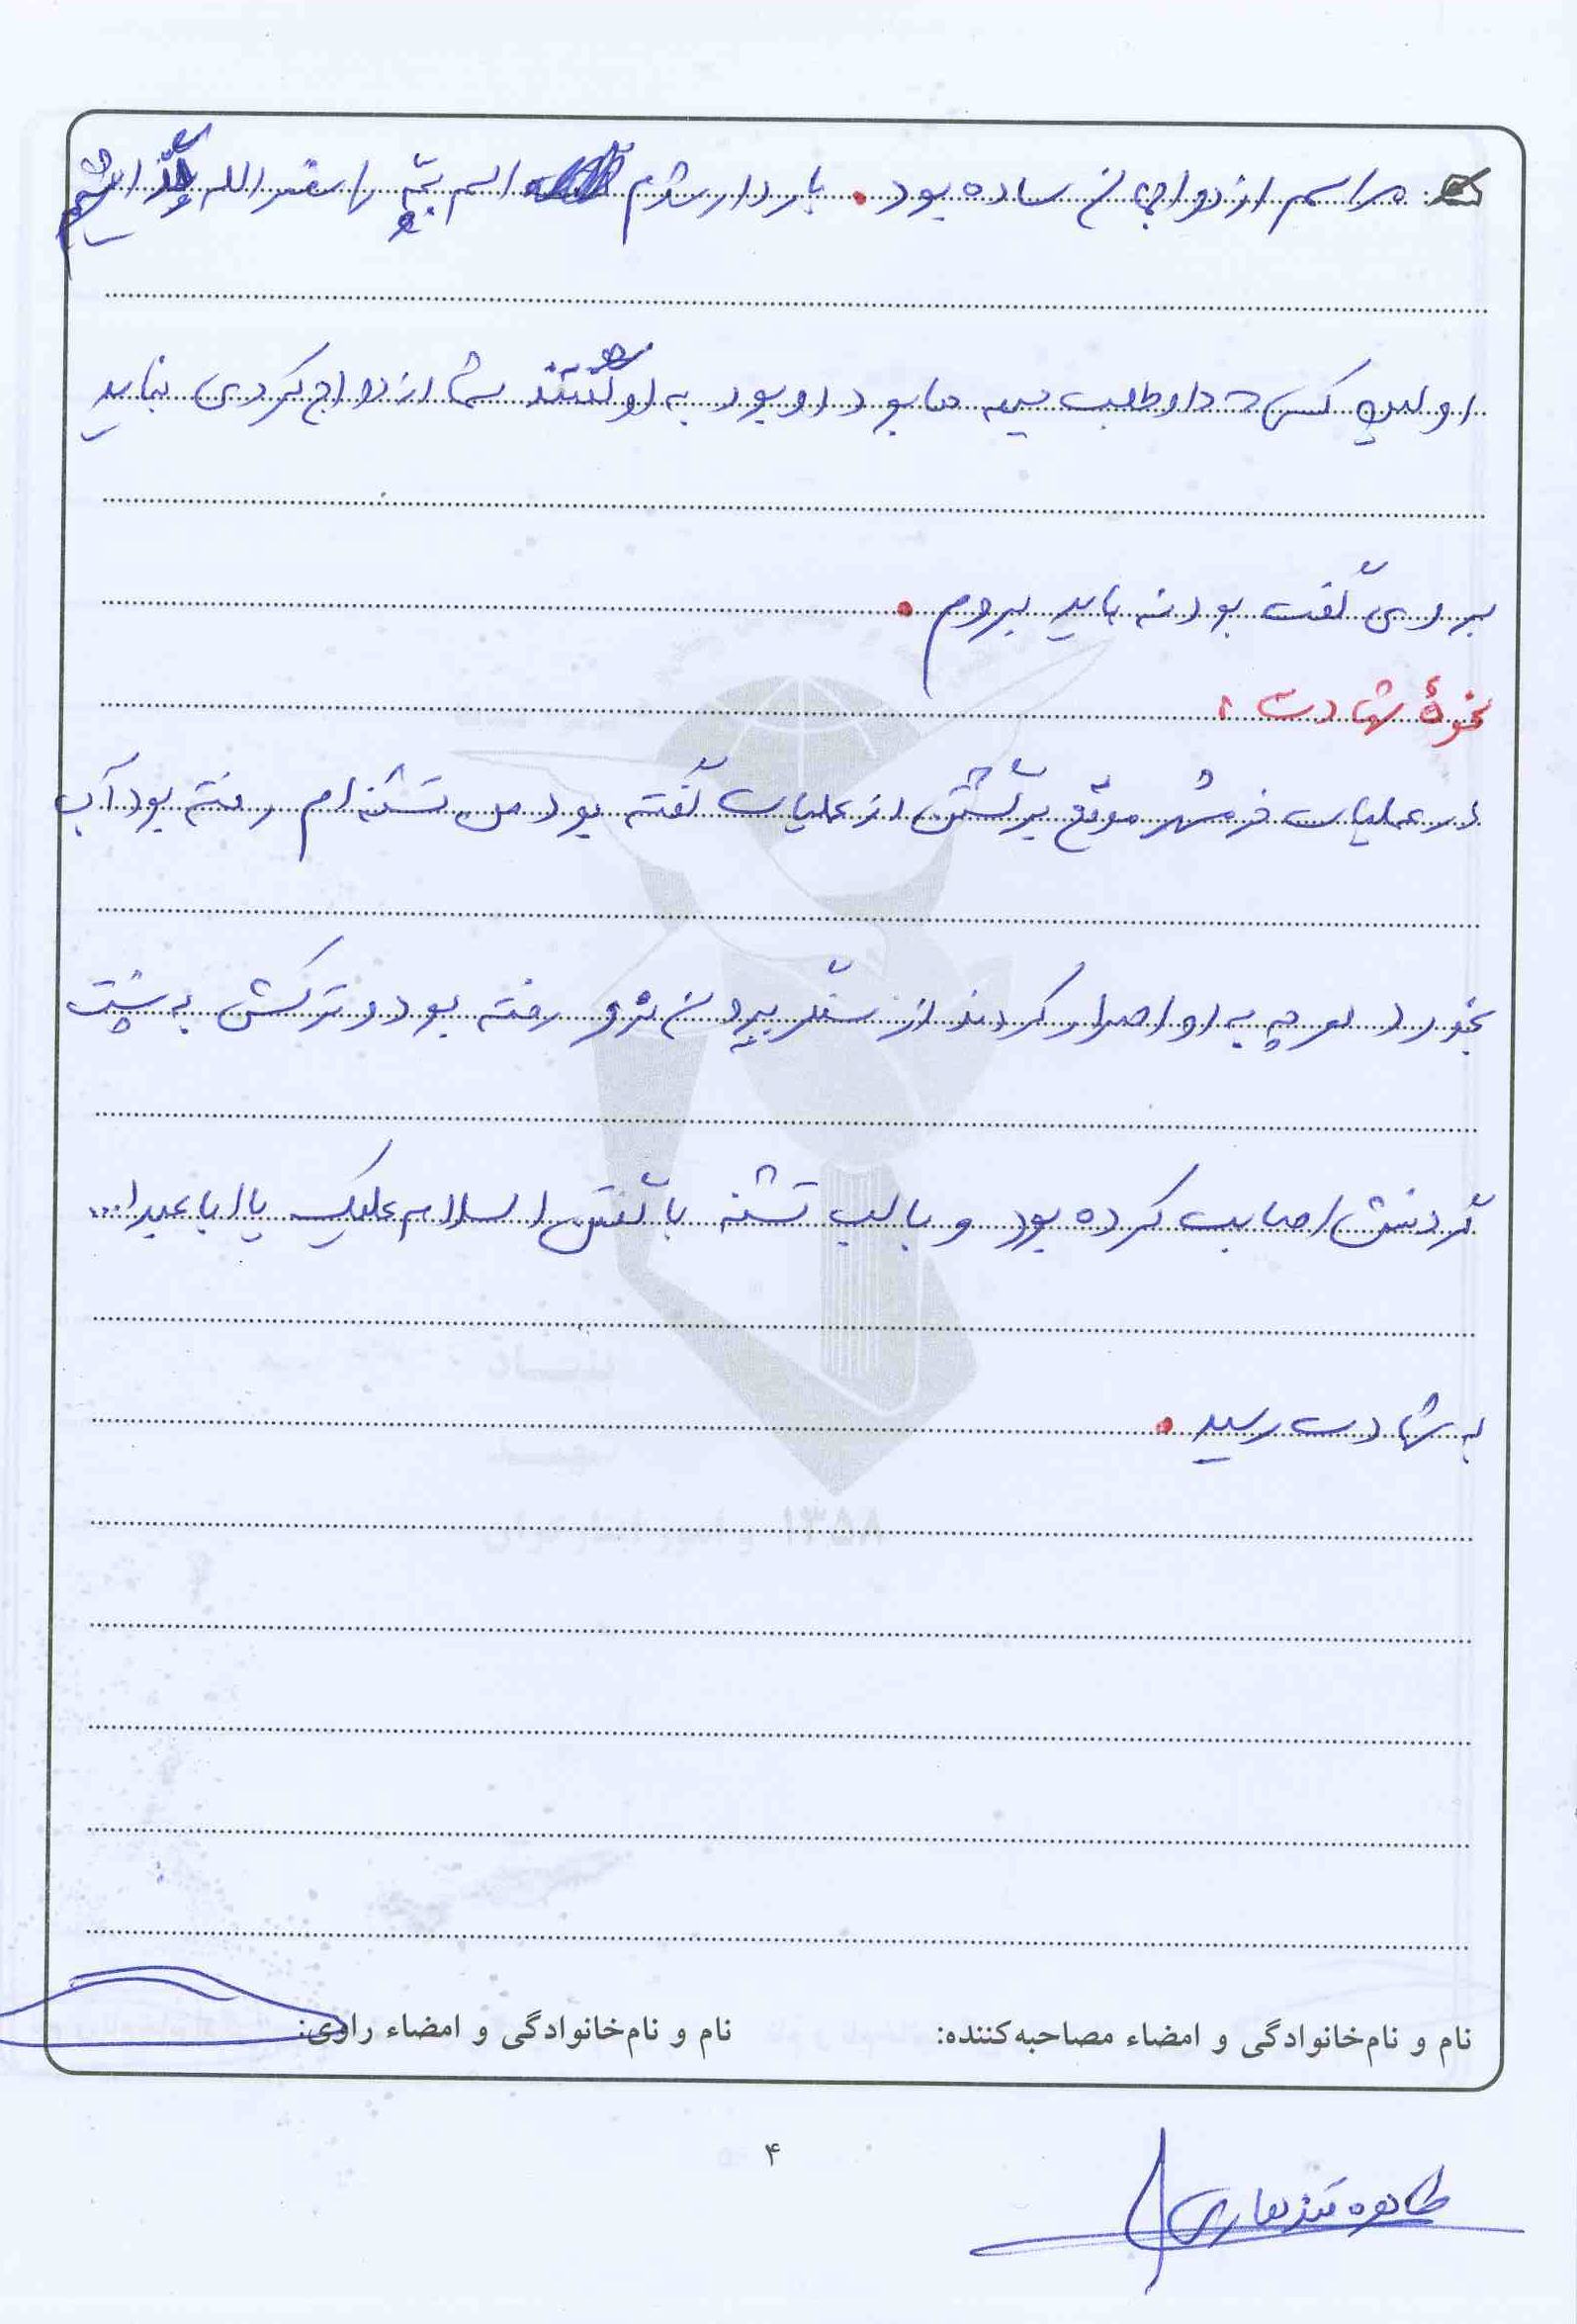 مراسم ازدواجمان ساده بود. باردار شدم اسم بچه را سعد الله گذاشتیم
اولین کسی که داوطلب جبهه ها بود او بود به او گفتند شما ازدواج کردی نباید
بروی گفت بود نه باید بروم.
نحوهٔ شهادت:
در عملیات خرمشهر موقع برگشتن از عملیات گفته بود من تشنه ام رفته بود آب
بخورد هر چه به او اصرار کردند از سنگر بیرون نرو رفته بود و ترکش به پشت
گردنش اصابت کرده بود و با لب تشنه با گفتن السلام علیک یا ابا عبدا...
به شهادت رسید.
بنیاد
شهید
و امور ایثارگران ۱۳۵۸
نام و نام‌خانوادگی و امضاء مصاحبه‌کننده: نام و نام‌خانوادگی و امضاء راوی:
۴
طاهره قندهاری